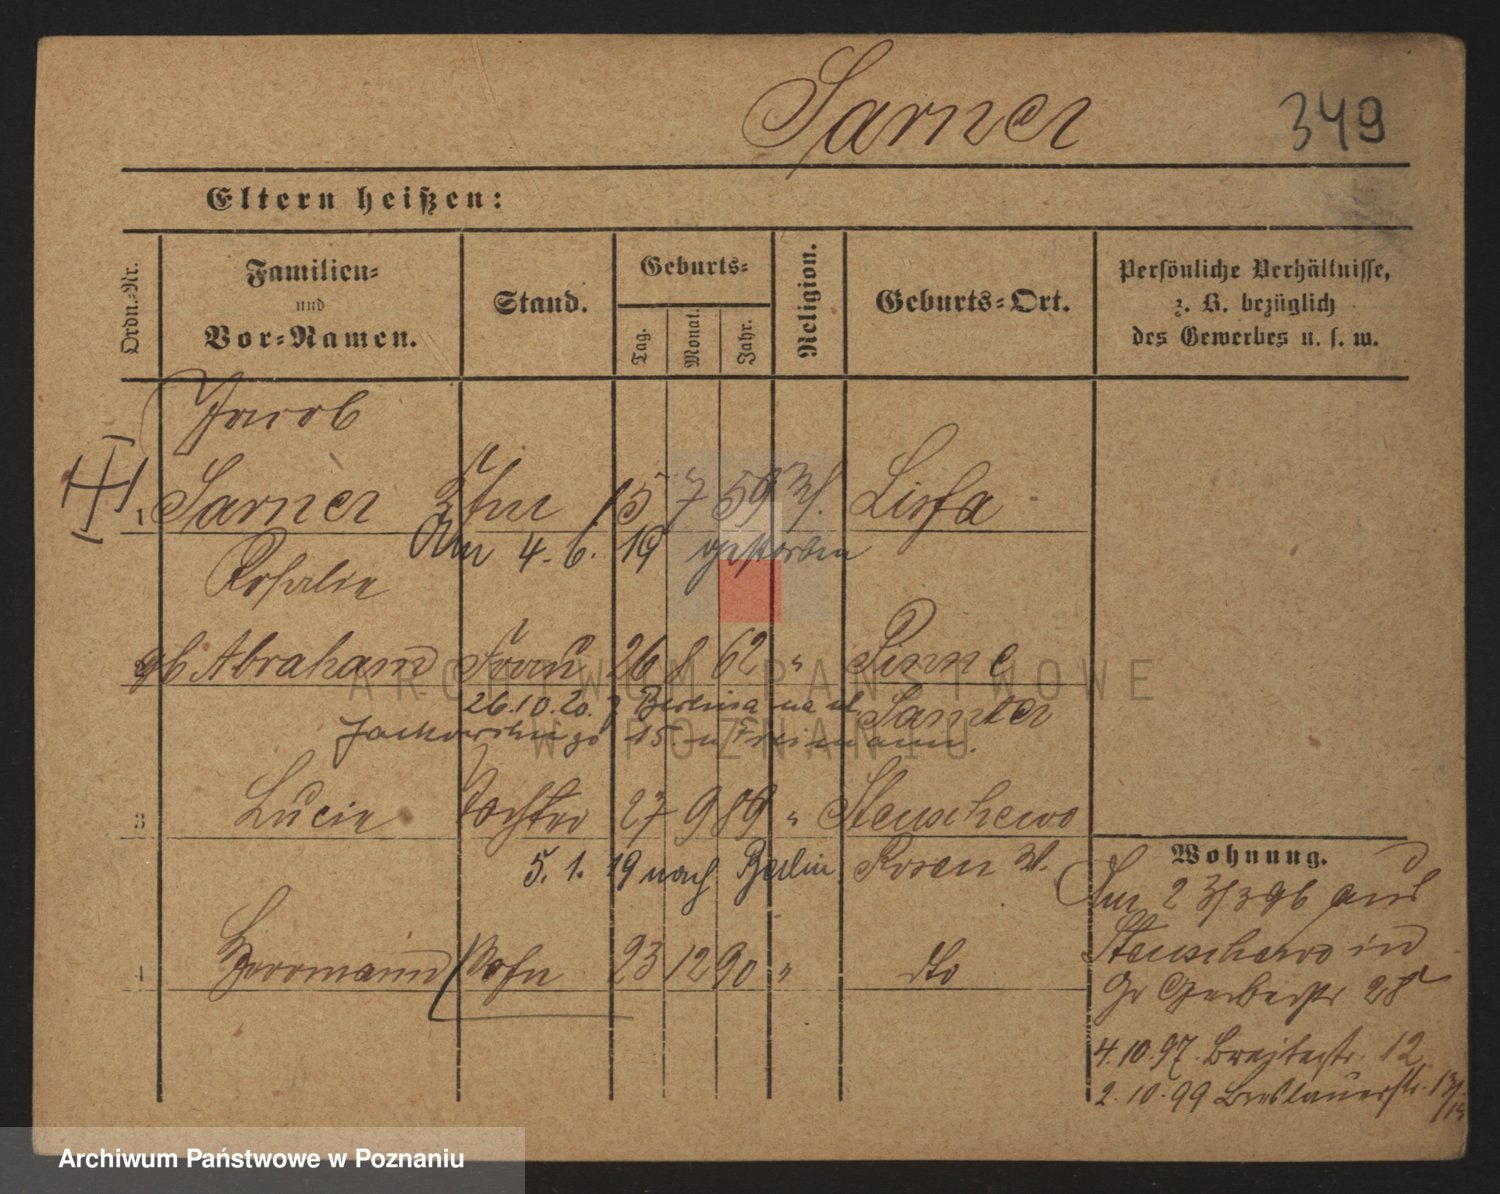 Sarner 349
Eltern heißen:
Ordn.-Nr.
Familien-
und
Vor-Namen.
Stand.
Geburts-
Tag.
Monat.
Jahr.
Religion.
Geburts-Ort.
Persönliche Verhältnisse,
z. B. bezüglich
des Gewerbes u. s. w.
Jacob
1 Sarner 15 7 59 Lissa
Am 4. 6. 19 gestorben
Rosalie
gb Abraham Frau 26 8 62 " Pinne
26.10.20. z Berlina na ul. Samter
15 u Freimann.
3 Lucie Tochter 27 9 89 " Stenschewo
5. 1. 19 nach Berlin Posen W.
4 Herrmann Sohn 23 12 90 " dto
Wohnung.
Am 23/3 96 aus
Stenschewo in
Gr Gerberstr 28
4.10.97. Breitestr. 12
2.10.99 Breslauerstr. 13/
ARCHIWUM PAŃSTWOWE
W POZNANIU
Archiwum Państwowe w Poznaniu